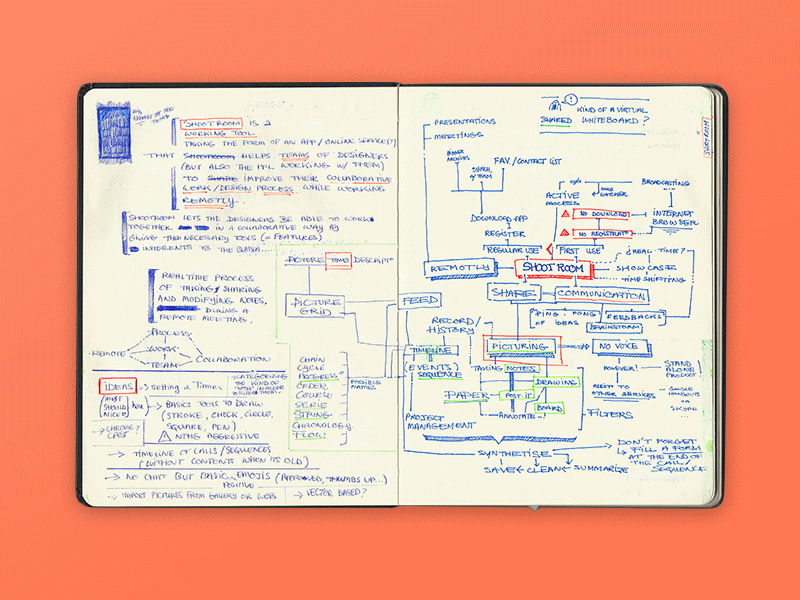 SHOOTROOM IS A
WORKING TOOL
TAKING THE FORM OF AN APP / ONLINE SERVICE(?)
THAT SHOOTROOM HELPS TEAMS OF DESIGNERS
(BUT ALSO THE PPL WORKING W/ THEM)
TO SHARE IMPROVE THEIR COLLABORATIVE
WORK/DESIGN PROCESS WHILE WORKING
REMOTLY.
SHOOTROOM LETS THE DESIGNERS BE ABLE TO WORK
TOGETHER IN A COLLABORATIVE WAY BY
GIVING THE NECESSARY TOOLS (= FEATURES)
INHERENTS TO THE
REALTIME PROCESS
OF TAKING / SHARING
AND MODIFYING NOTES.
DURING A
REMOTE MEETING.
PROCESS
REMOTE WORK COLLABORATION
TEAM
PICTURE TIME DESCRIPT°
PICTURE
GRID
CHAIN
CYCLE
PROGRESS°
ORDER
COURSE
SERIE
STRING
CHRONOLOGY
FLOW
POSSIBLE
NAMES
IDEAS
→ Setting a Timer
CATEGORIZING
THE KIND OF
MUST
SHOULD
NICE
HAVE
→ BASICS TOOLS TO DRAW
(STROKE, CHECK, CIRCLE,
SQUARE, PEN)
NTHG AGGRESTIVE
→ CHROME?
CAST
→ TIMELINE OF CALLS/SEQUENCES
(WITHOUT CONTENTS WHEN ITS OLD)
→ NO CHAT BUT BASIC EMOJIS (APPROVED, THUMBS UP...)
POSITIVE
→ IMPORT PICTURES FROM GALLERY OR WEB
→ VECTOR BASED?
KIND OF A VIRTUAL
SHARED WHITEBOARD?
SHOOTROOM
PRESENTATIONS
MEETINGS
ARCHIVES
W/ TEAM
FAV. / CONTACT LIST
DOWNLOAD APP
REGISTER
REGULAR USE
FIRST USE
ACTIVE
PROCESS
BROADCASTING
NO DOWNLOAD
NO REGISTRAT°
INTERNET
BROWSER
REMOTLY
SHOOTROOM
¿REAL-TIME?
SHOWCASE
TIME SHIFTING
SHARE
COMMUNICATION
"PING-PONG"
OF IDEAS
FEEDBACKS
BRAINSTORM
FEED
RECORD/
HISTORY
PICTURING
NO VOICE
TIMELINE
(EVENTS)
SEQUENCE
TAKING NOTES
DRAWING
PAPER
POST-IT
BOARD
ANNOTATE
FILTERS
HOWEVER!
STAND
ALONE
PRODUCT
ALERT TO
OTHER SERVICES
GOOGLE
HANGOUTS
OR
SKYPE
PROJECT
MANAGEMENT
SYNTHETISE
SAVE CLEAN SUMMARIZE
DON'T FORGET
FILL A FORM
AT THE END OF
THE CALL/
SEQUENCE